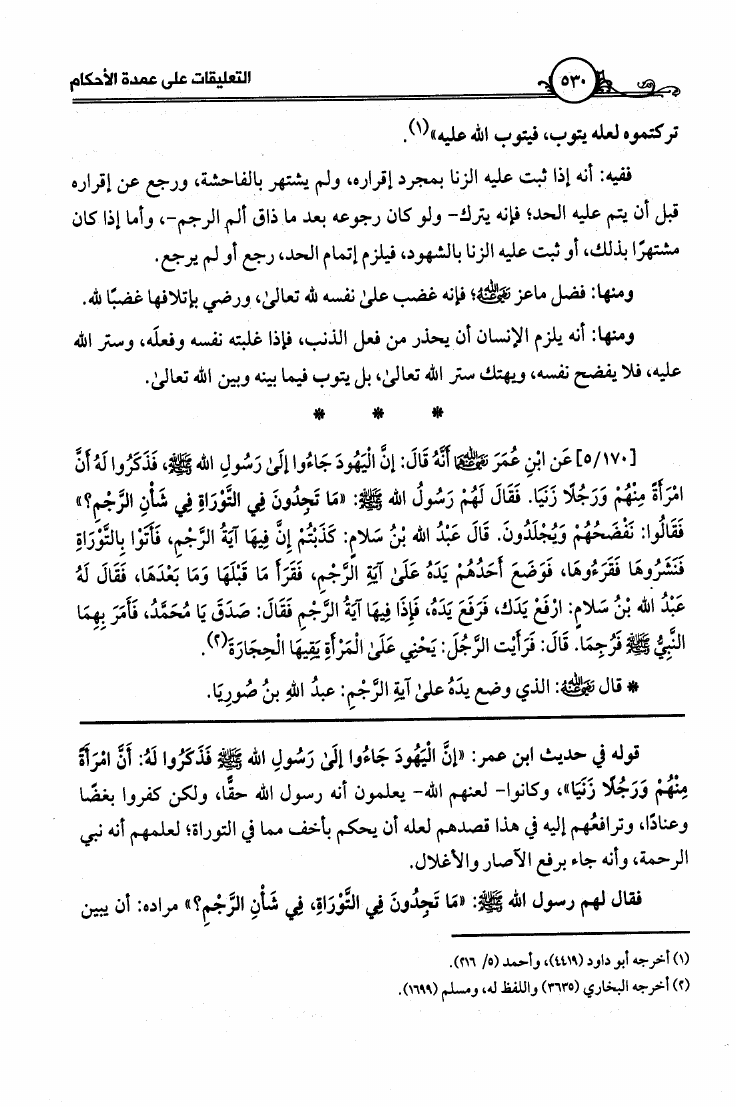 التعليقات على عمدة الأحكام
٥٣٠
تركتموه لعله يتوب، فيتوب الله عليه»(١).
ففيه: أنه إذا ثبت عليه الزنا بمجرد إقراره، ولم يشتهر بالفاحشة، ورجع عن إقراره
قبل أن يتم عليه الحد؛ فإنه يترك- ولو كان رجوعه بعد ما ذاق ألم الرجم-، وأما إذا كان
مشتهرًا بذلك، أو ثبت عليه الزنا بالشهود، فيلزم إتمام الحد، رجع أو لم يرجع.
ومنها: فضل ماعز رَضِيَ اللهُ عَنْهُ؛ فإنه غضب علىٰ نفسه لله تعالىٰ، ورضي بإتلافها غضبًا لله.
ومنها: أنه يلزم الإنسان أن يحذر من فعل الذنب، فإذا غلبته نفسه وفعلَه، وستر الله
عليه، فلا يفضح نفسه، ويهتك ستر الله تعالىٰ، بل يتوب فيما بينه وبين الله تعالىٰ.
* * *
[٥/١٧٠] عَن ابْنِ عُمَرَ رَضِيَ اللهُ عَنْهُمَا أَنَّهُ قَالَ: إِنَّ الْيَهُودَ جَاءُوا إِلَىٰ رَسُولِ الله ﷺ، فَذَكَرُوا لَهُ أَنَّ
امْرَأَةً مِنْهُمْ وَرَجُلًا زَنَيَا. فَقَالَ لَهُمْ رَسُولُ الله ﷺ: «مَا تَجِدُونَ فِي التَّوْرَاةِ فِي شَأْنِ الرَّجْمِ؟»
فَقَالُوا: نَفْضَحُهُمْ وَيُجْلَدُونَ. قَالَ عَبْدُ الله بْنُ سَلَامٍ: كَذَبْتُمْ إِنَّ فِيهَا آيَةُ الرَّجْمِ، فَأَتَوْا بِالتَّوْرَاةِ
فَنَشَرُوهَا فَقَرَءُوهَا، فَوَضَعَ أَحَدُهُمْ يَدَهُ عَلَىٰ آيَةِ الرَّجْمِ، فَقَرَأَ مَا قَبْلَهَا وَمَا بَعْدَهَا، فَقَالَ لَهُ
عَبْدُ الله بْنُ سَلَامٍ: ارْفَعْ يَدَكَ، فَرَفَعَ يَدَهُ، فَإِذَا فِيهَا آيَةُ الرَّجْمِ فَقَالَ: صَدَقَ يَا مُحَمَّدُ، فَأَمَرَ بِهِمَا
النَّبِيُّ ﷺ فَرُجِمَا. قَالَ: فَرَأَيْت الرَّجُلَ: يَحْنِي عَلَىٰ الْمَرْأَةِ يَقِيهَا الْحِجَارَةَ(٢).
* قال رَضِيَ اللهُ عَنْهُ: الذي وضع يدَهُ علىٰ آيةِ الرَّجْمِ: عبدُ اللهِ بنُ صُورِيَا.
قوله في حديث ابن عمر: «إِنَّ الْيَهُودَ جَاءُوا إِلَىٰ رَسُولِ الله ﷺ فَذَكَرُوا لَهُ: أَنَّ امْرَأَةً
مِنْهُمْ وَرَجُلًا زَنَيَا»، وكانوا- لعنهم الله- يعلمون أنه رسول الله حقًّا، ولكن كفروا بغضًا
وعنادًا، وترافعُهم إليه في هذا قصدهم لعله أن يحكم بأخف مما في التوراة؛ لعلمهم أنه نبي
الرحمة، وأنه جاء برفع الآصار والأغلال.
فقال لهم رسول الله ﷺ: «مَا تَجِدُونَ فِي التَّوْرَاةِ، فِي شَأْنِ الرَّجْمِ؟» مراده: أن يبين
(١) أخرجه أبو داود (٤٤١٩)، وأحمد (٥/ ٢١٦).
(٢) أخرجه البخاري (٣٦٣٥) واللفظ له، ومسلم (١٦٩٩).